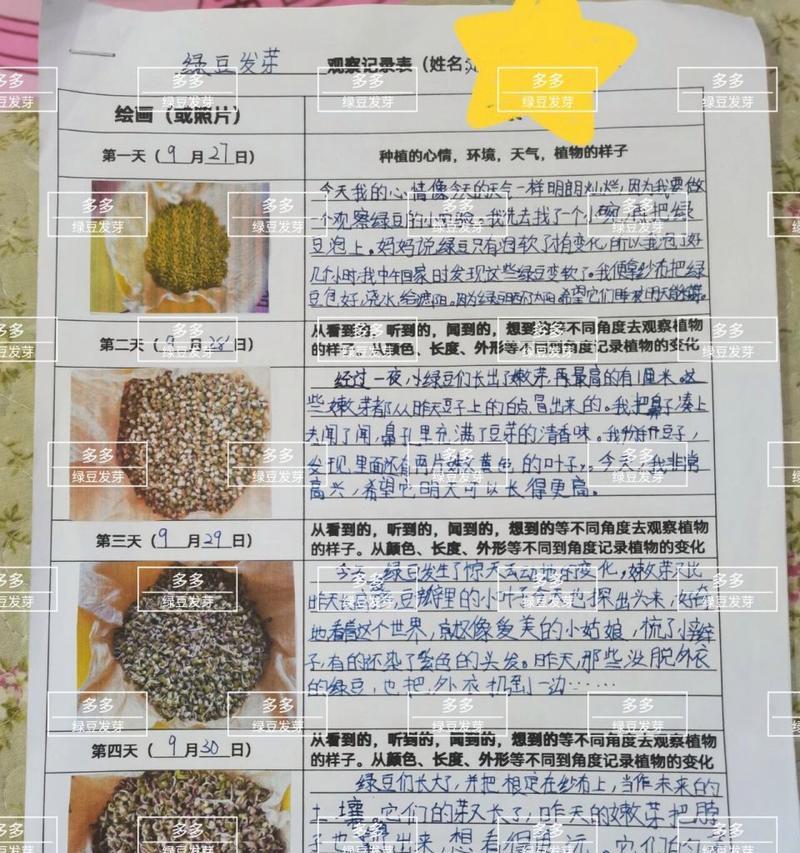 绿豆发芽 观察记录表（姓名：
绘画（或照片）
第一天（9月27日）
种植的心情，环境，天气，植物的样子
今天我的心情像今天的天气一样明朗灿烂，因为我要做
一个观察绿豆的小实验。我先去找了一个小碗，再把绿
豆泡上。妈妈说绿豆只有泡软了才有变化，所以我泡了好
几个小时。我中午回家时发现这些绿豆变软了。我便拿纱布把绿
豆包好，浇水，给遮阳。因为绿豆
第二天（9月28日）
从看到的，听到的，闻到的，想到的等不同角度去观察植物
的样子。从颜色、长度、外形等不同到角度记录植物的变化
经过一夜，小绿豆们长出了嫩芽，再最高的有1厘米。这
些嫩芽都从昨天豆子上的白点冒出来的。我把鼻子凑上
去闻了闻，鼻孔里充满了豆芽的清香味。我
发现，里面还有两片嫩黄色的叶子。今天，我非常
高兴，希望它明天可以长得更高。
第三天（9月29日）
从看到的，听到的，闻到的，想到的等不同角度去观察植物
的样子。从颜色、长度、外形等不同到角度记录植物的变化
今天，绿豆发生了惊天动地的变化，嫩芽又比
昨天 豆瓣里的小叶子今天也探出头来，好奇
地看着这个世界，就像爱美的小姑娘，梳了小辫
子，有的还染了紫色的头发。昨天，那些没脱外衣
的绿豆，也把外衣扔到一边……
第四天（9月30日）
从看到的，听到的，闻到的，想到的等不同角度去观察植物
的样子。从颜色、长度、外形等不同到角度记录植物的变化
绿豆们长大了，并把根定在纱布上，当作未来的
土壤。它们的芽又长了，昨天的嫩芽把脖
子也 出来，想看 它们的
多多
绿豆发芽